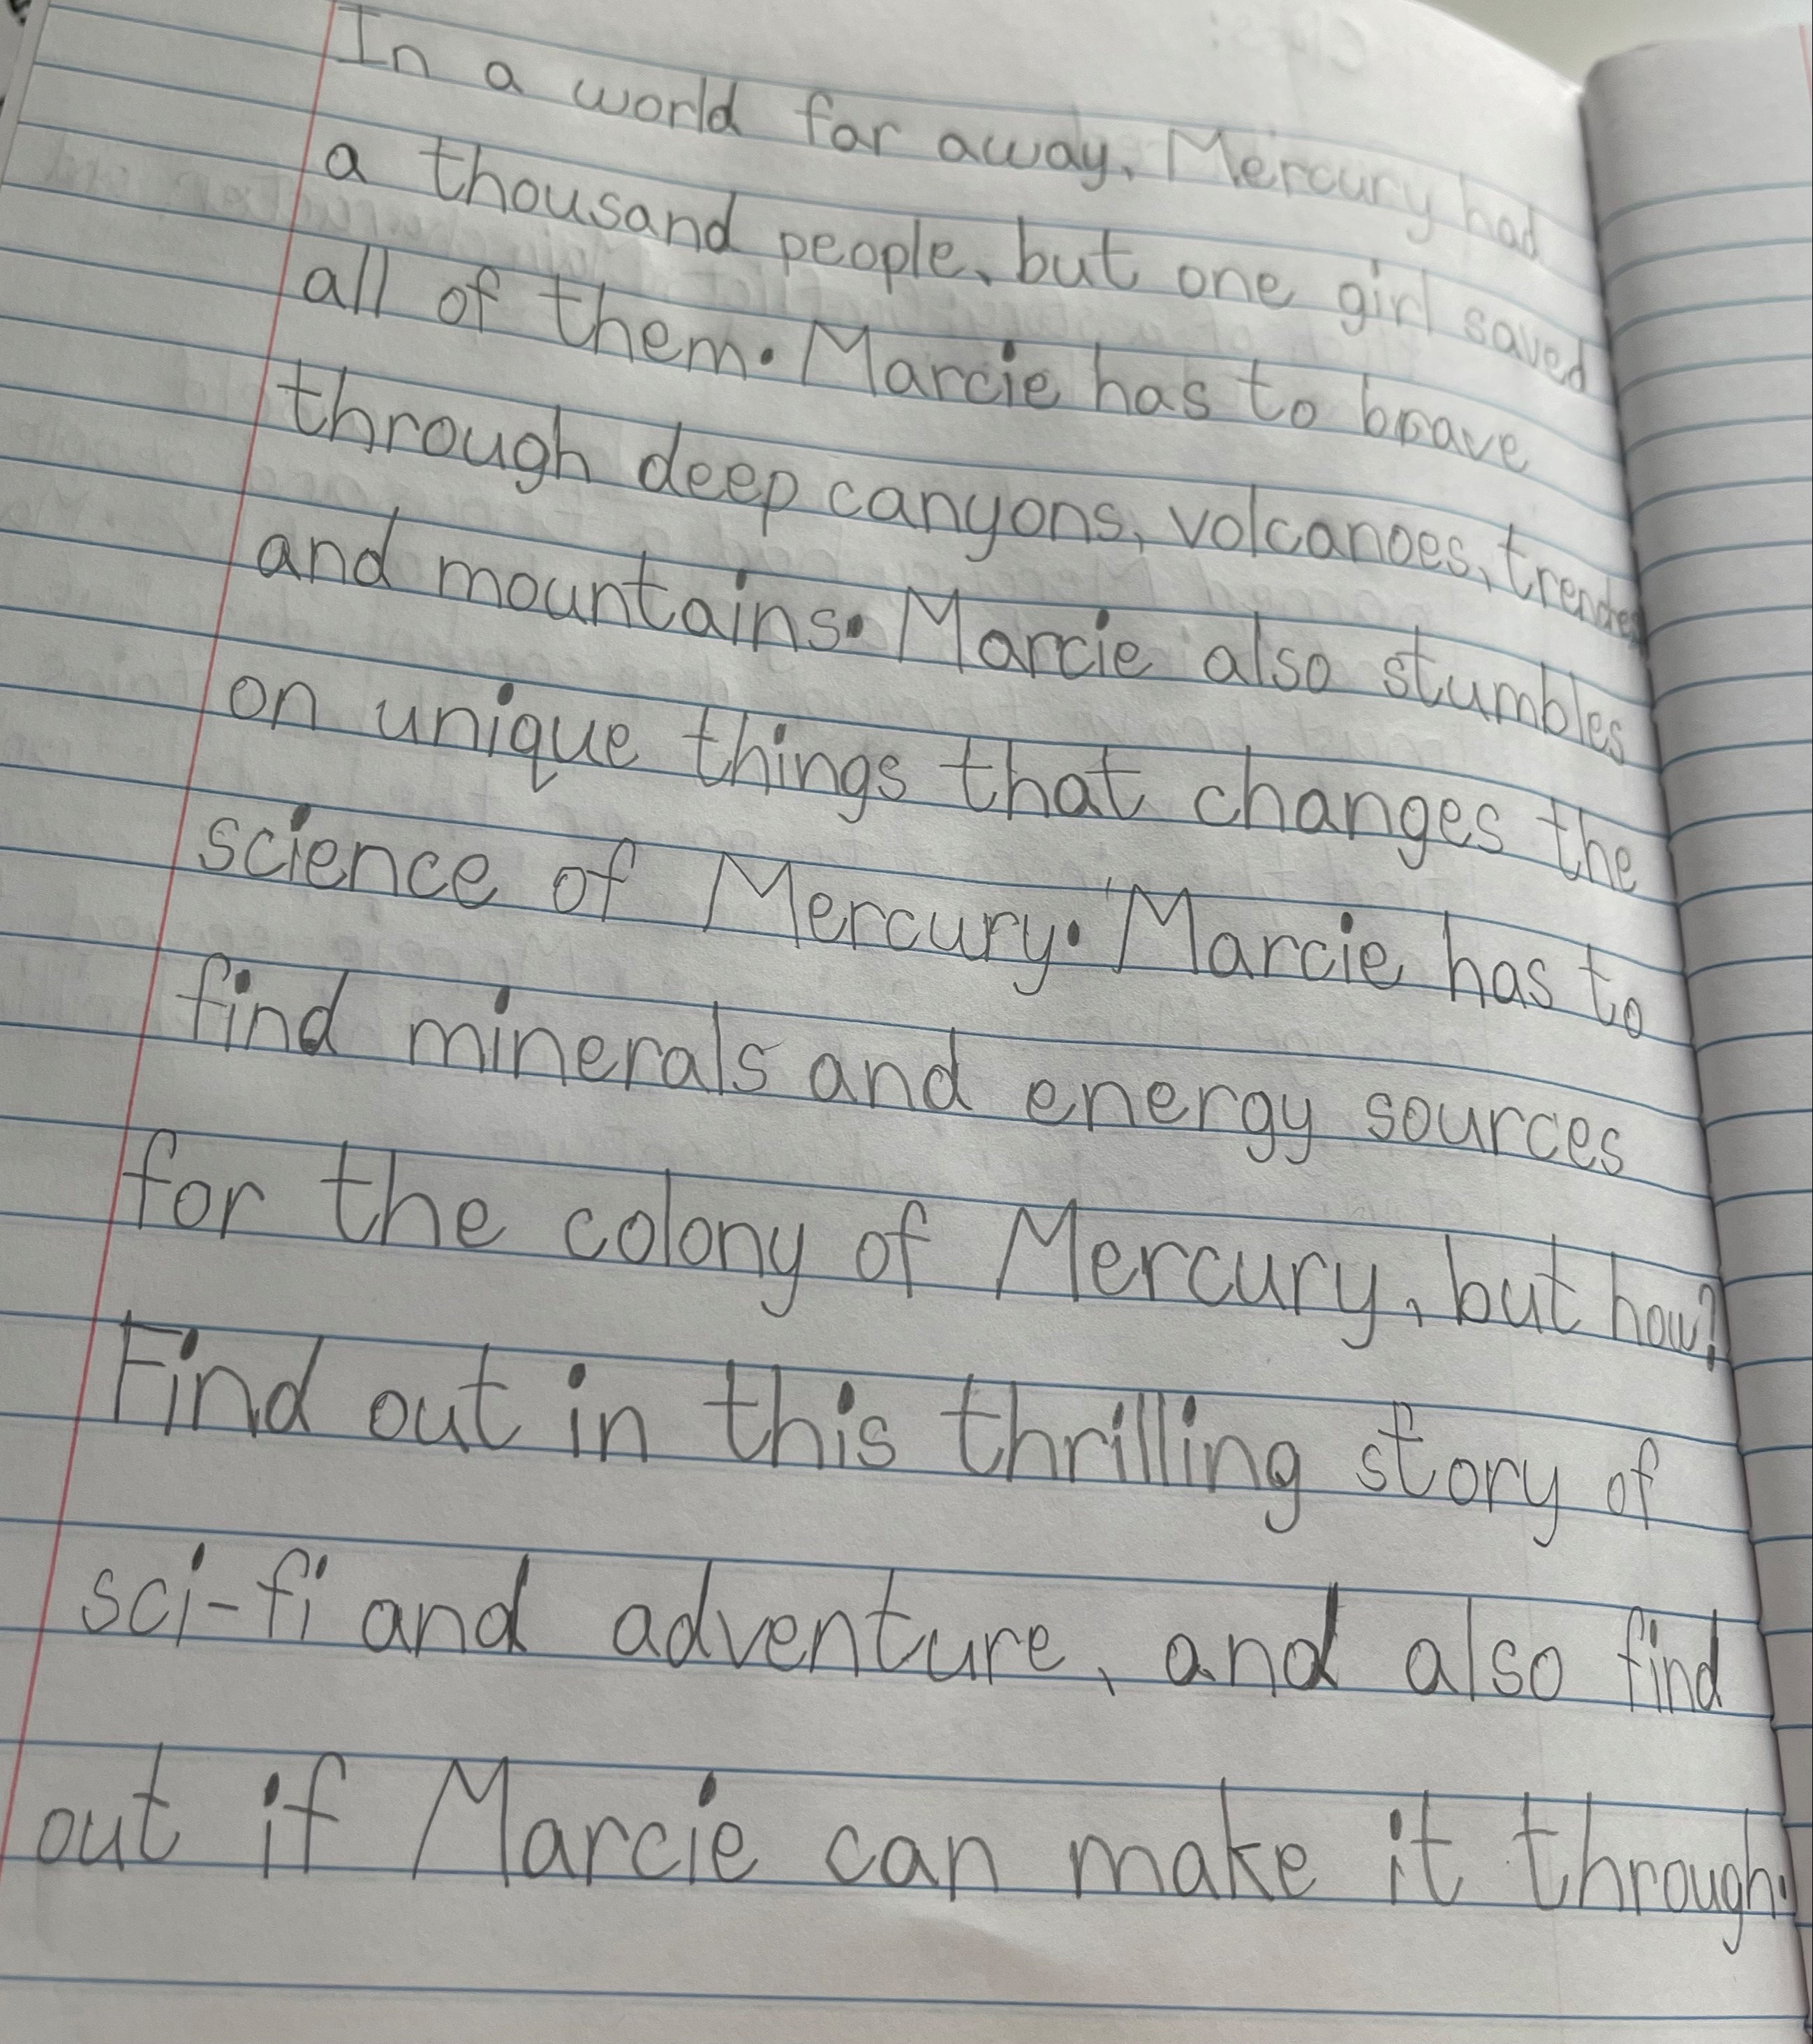 In a world far away, Mercury had
a thousand people, but one girl saved
all of them. Marcie has to brave
through deep canyons, volcanoes, trenches
and mountains. Marcie also stumbles
on unique things that changes the
science of Mercury. Marcie has to
find minerals and energy sources
for the colony of Mercury, but how?
Find out in this thrilling story of
sci-fi and adventure, and also find
out if Marcie can make it through.